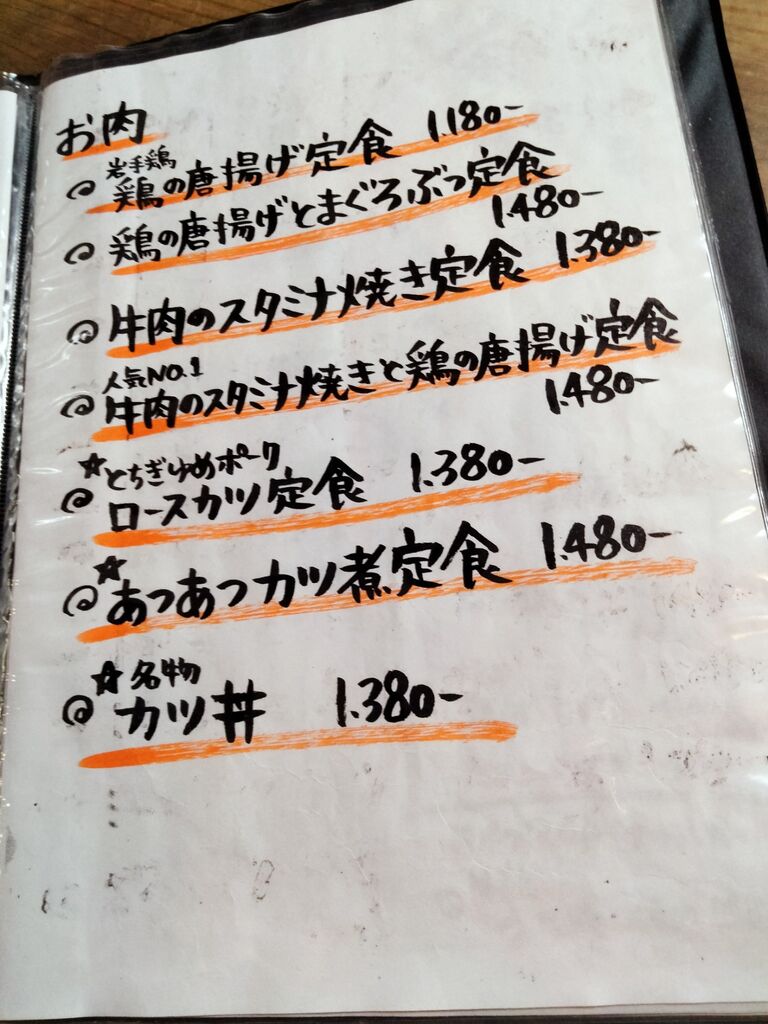 お肉
岩手鶏
鶏の唐揚げ定食 1.180-
鶏の唐揚げとまぐろぶつ定食
1.480-
牛肉のスタミナ焼き定食 1.380-
人気NO.1
牛肉のスタミナ焼きと鶏の唐揚げ定食
1.480-
☆とちぎゆめポーク
ロースカツ定食 1.380-
☆
あつあつカツ煮定食 1.480-
☆名物
カツ丼 1.380-